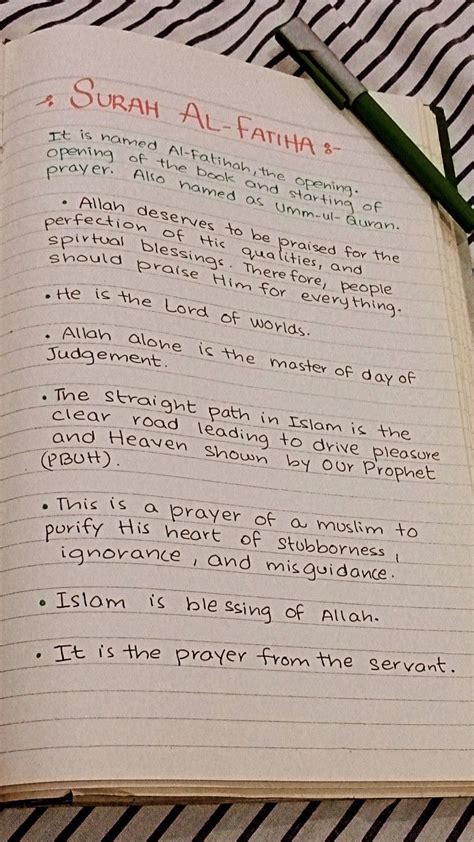 : SURAH AL-FATIHA :-
It is named Al-Fatihah, the opening.
opening of the book and starting of
prayer. Also named as Umm-ul-Quran.
• Allah deserves to be praised for the
perfection of His qualities, and
spirtual blessings. Therefore, people
should praise Him for everything.
• He is the Lord of worlds.
• Allah alone is the master of day of
Judgement.
• The straight path in Islam is the
clear road leading to drive pleasure
and Heaven shown by our Prophet
(PBUH).
• This is a prayer of a muslim to
purify His heart of stubborness,
ignorance, and misguidance.
• Islam is blessing of Allah.
• It is the prayer from the servant.